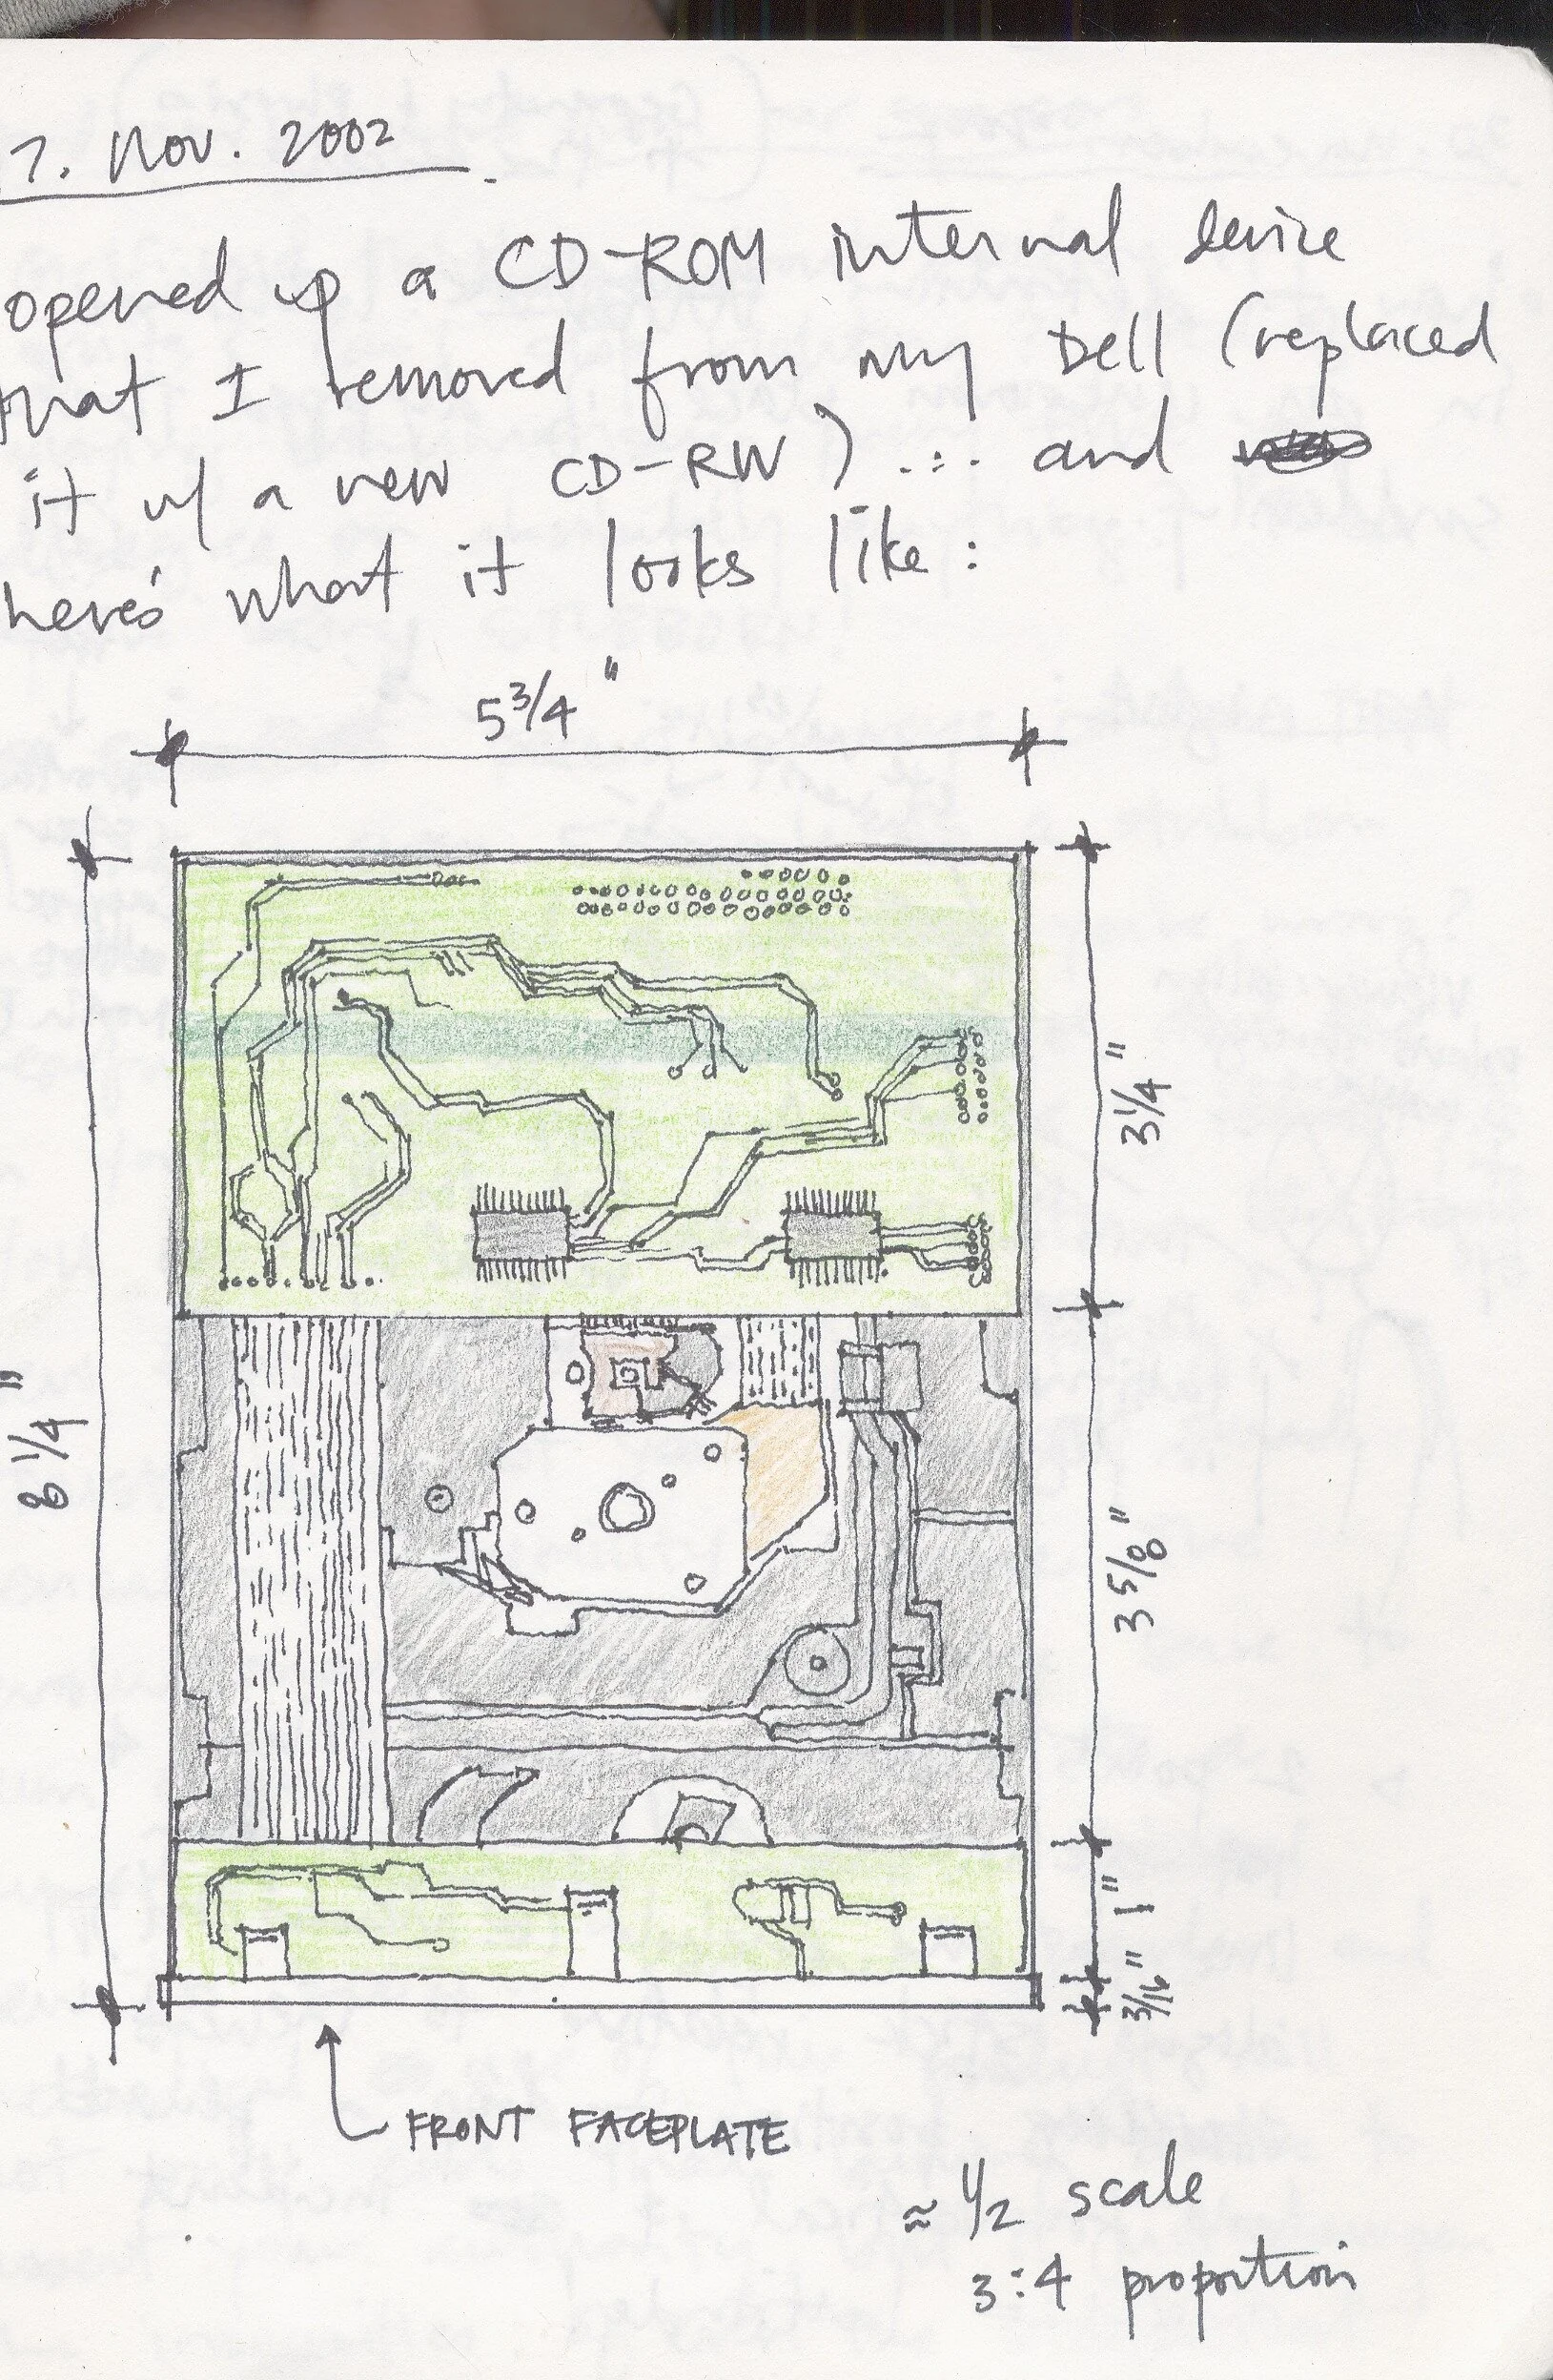 7. Nov. 2002
opened up a CD-ROM internal device
that I removed from my Dell (replaced
it w/ a new CD-RW) ... and
here's what it looks like:
5 3/4"
3 1/4"
8 1/4"
3 5/8"
1"
3/16"
FRONT FACEPLATE
≈ 1/2 scale
3:4 proportion